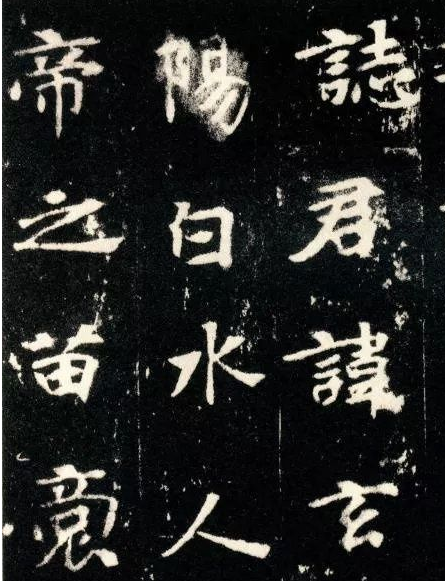 誌君諱玄
陽白水人
帝之苗裔